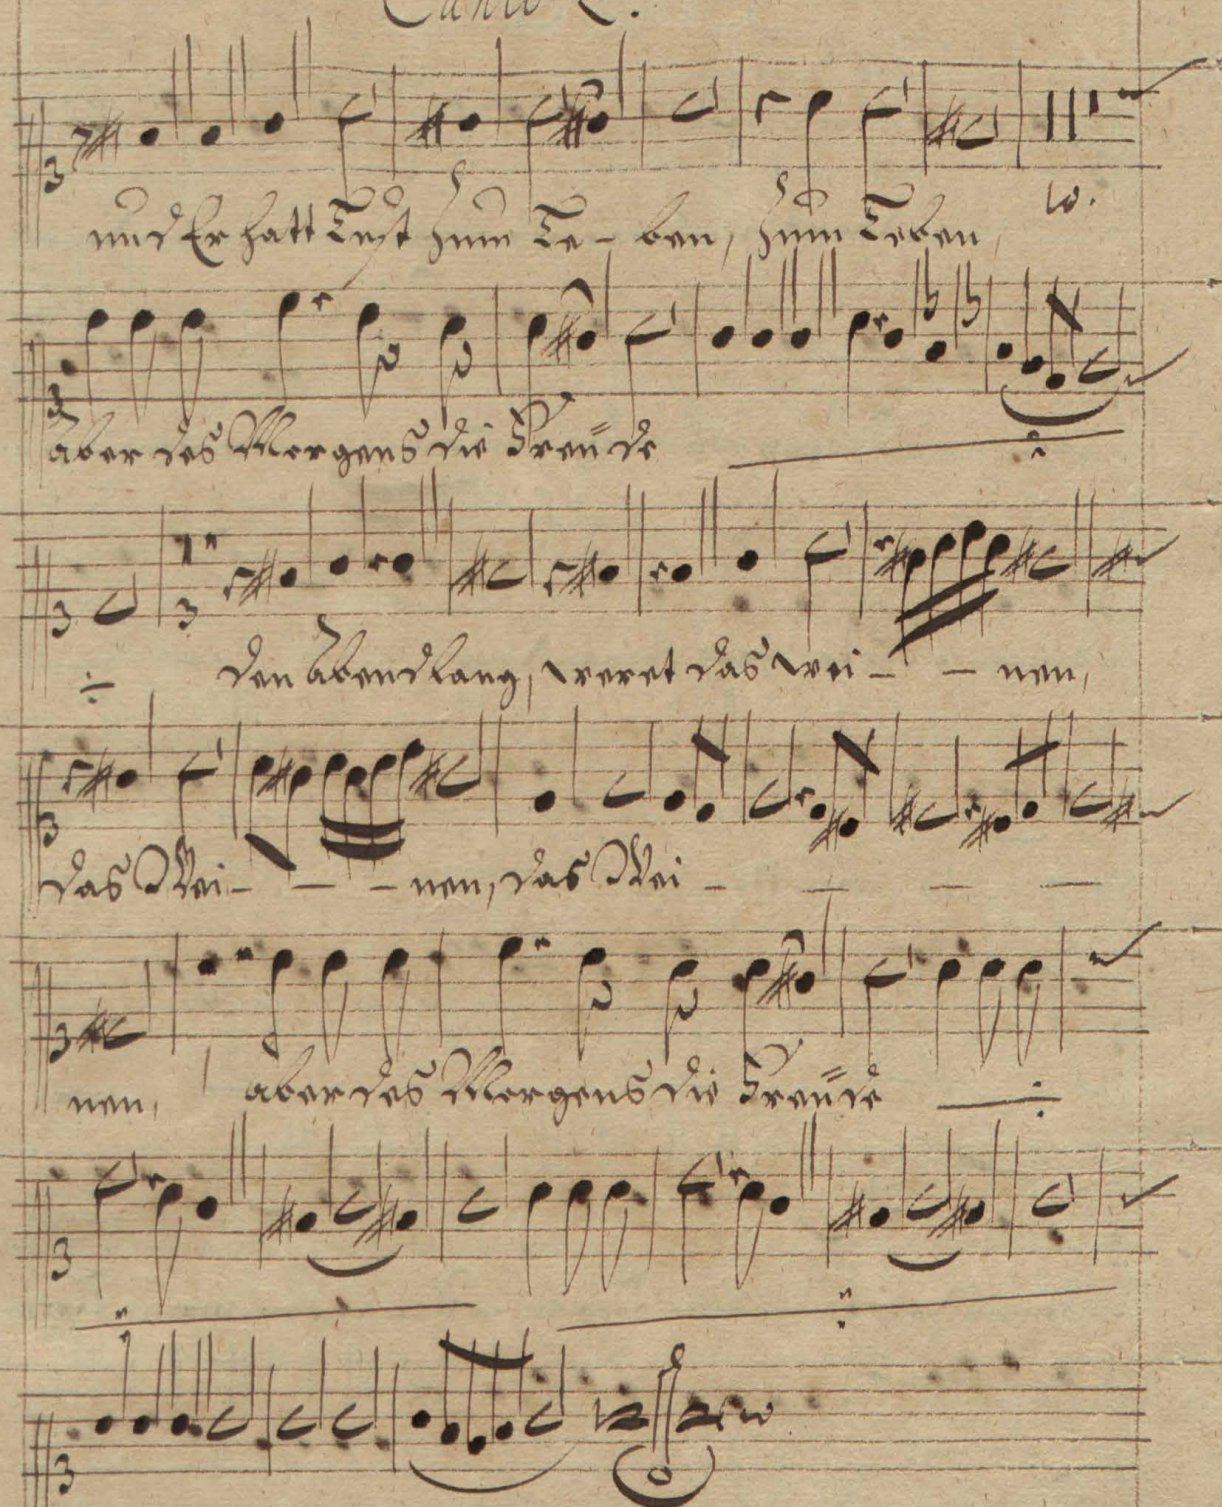 Canto 2.
und Er hatt Lust zum Le- ben, zum Leben,
aber des Morgens die Freude
den Abendlang, weret das wei- - nen,
das Wei- - - nen, das Wei - - - -
nen, aber des Morgens die Freude